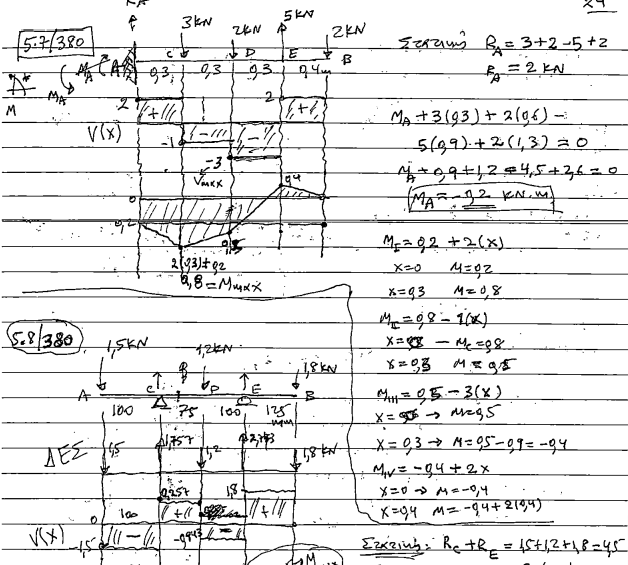 24
R_A
3KN
2KN
5KN
2KN
5.7/380
C
D
E
B
A
M_A
0,3
0,3
0,3
0,4m
M
2
2
V(x)
-1
-3
V_max
0
0,2
0,4
0,5
2(0,3)+0,2
0,8 = M_max
Στατική R_A = 3+2-5+2
R_A = 2 KN
M_A + 3(0,3) + 2(0,6) -
5(0,9) + 2(1,3) = 0
M_A + 0,9 + 1,2 - 4,5 + 2,6 = 0
M_A = -0,2 KN.m
M_I = 0,2 + 2(x)
x=0 M=0,2
x=0,3 M=0,8
M_II = 0,8 - 1(x)
x=0 → M_C=0,8
x=0,3 M=0,5
M_III = 0,5 - 3(x)
x=0 → M=0,5
x=0,3 → M=0,5-0,9=-0,4
M_IV = -0,4 + 2x
x=0 → M=-0,4
x=0,4 M=-0,4+2(0,4)
5.8/380
1,5KN
1,2KN
1,8KN
A
C
D
E
B
100
75
100
125
mm
ΔΕΣ
1,5
1,757
1,2
2,743
1,8KN
0,257
1,8
0
100
V(x)
-1,5
-0,943
M
Στατική: R_C + R_E = 1,5+1,2+1,8=4,5